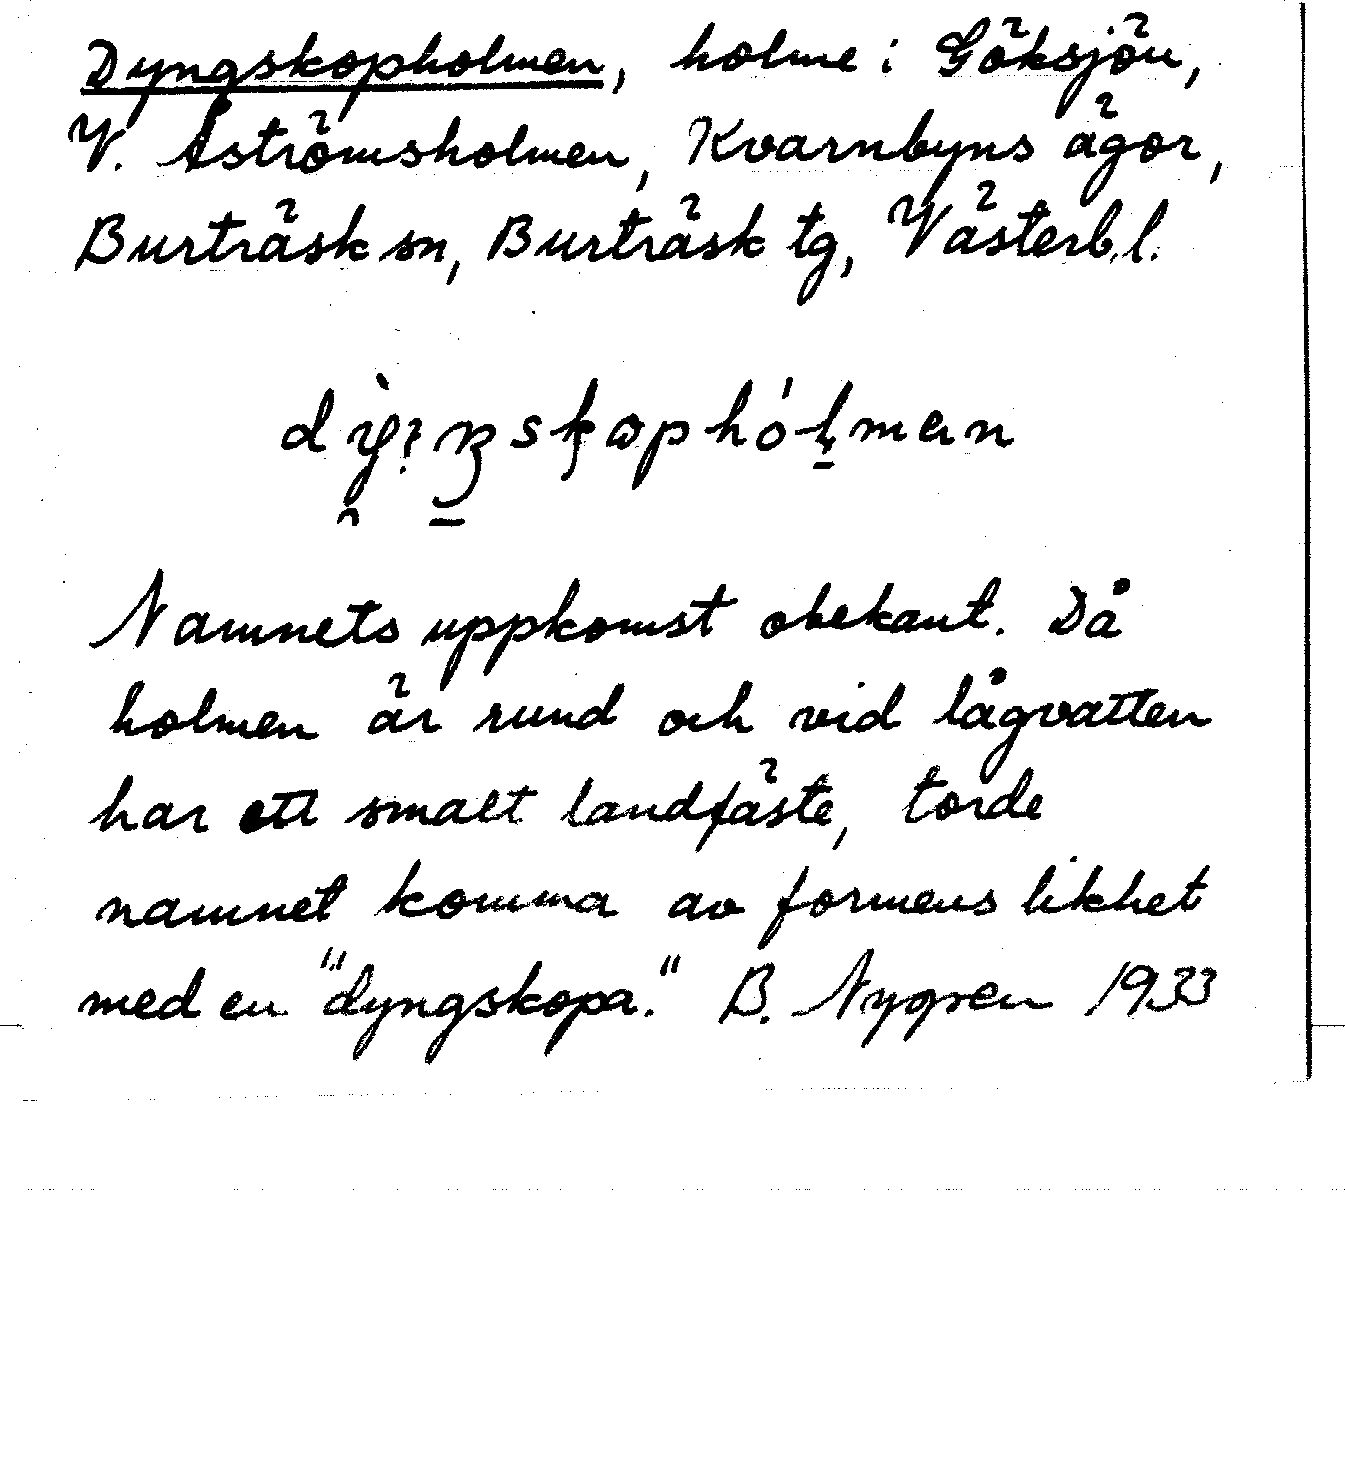 Dyngskopholmen, holme i Göksjön,
V. Åströmsholmen, Kvarnbyns ägor,
Burträsk sn, Burträsk tg, Västerb.l.
Namnets uppkomst obekant. Då
holmen är rund och vid lågvatten
har ett smalt landfäste, torde
namnet komma av formens likhet
med en "dyngskopa." B. Nygren 1933